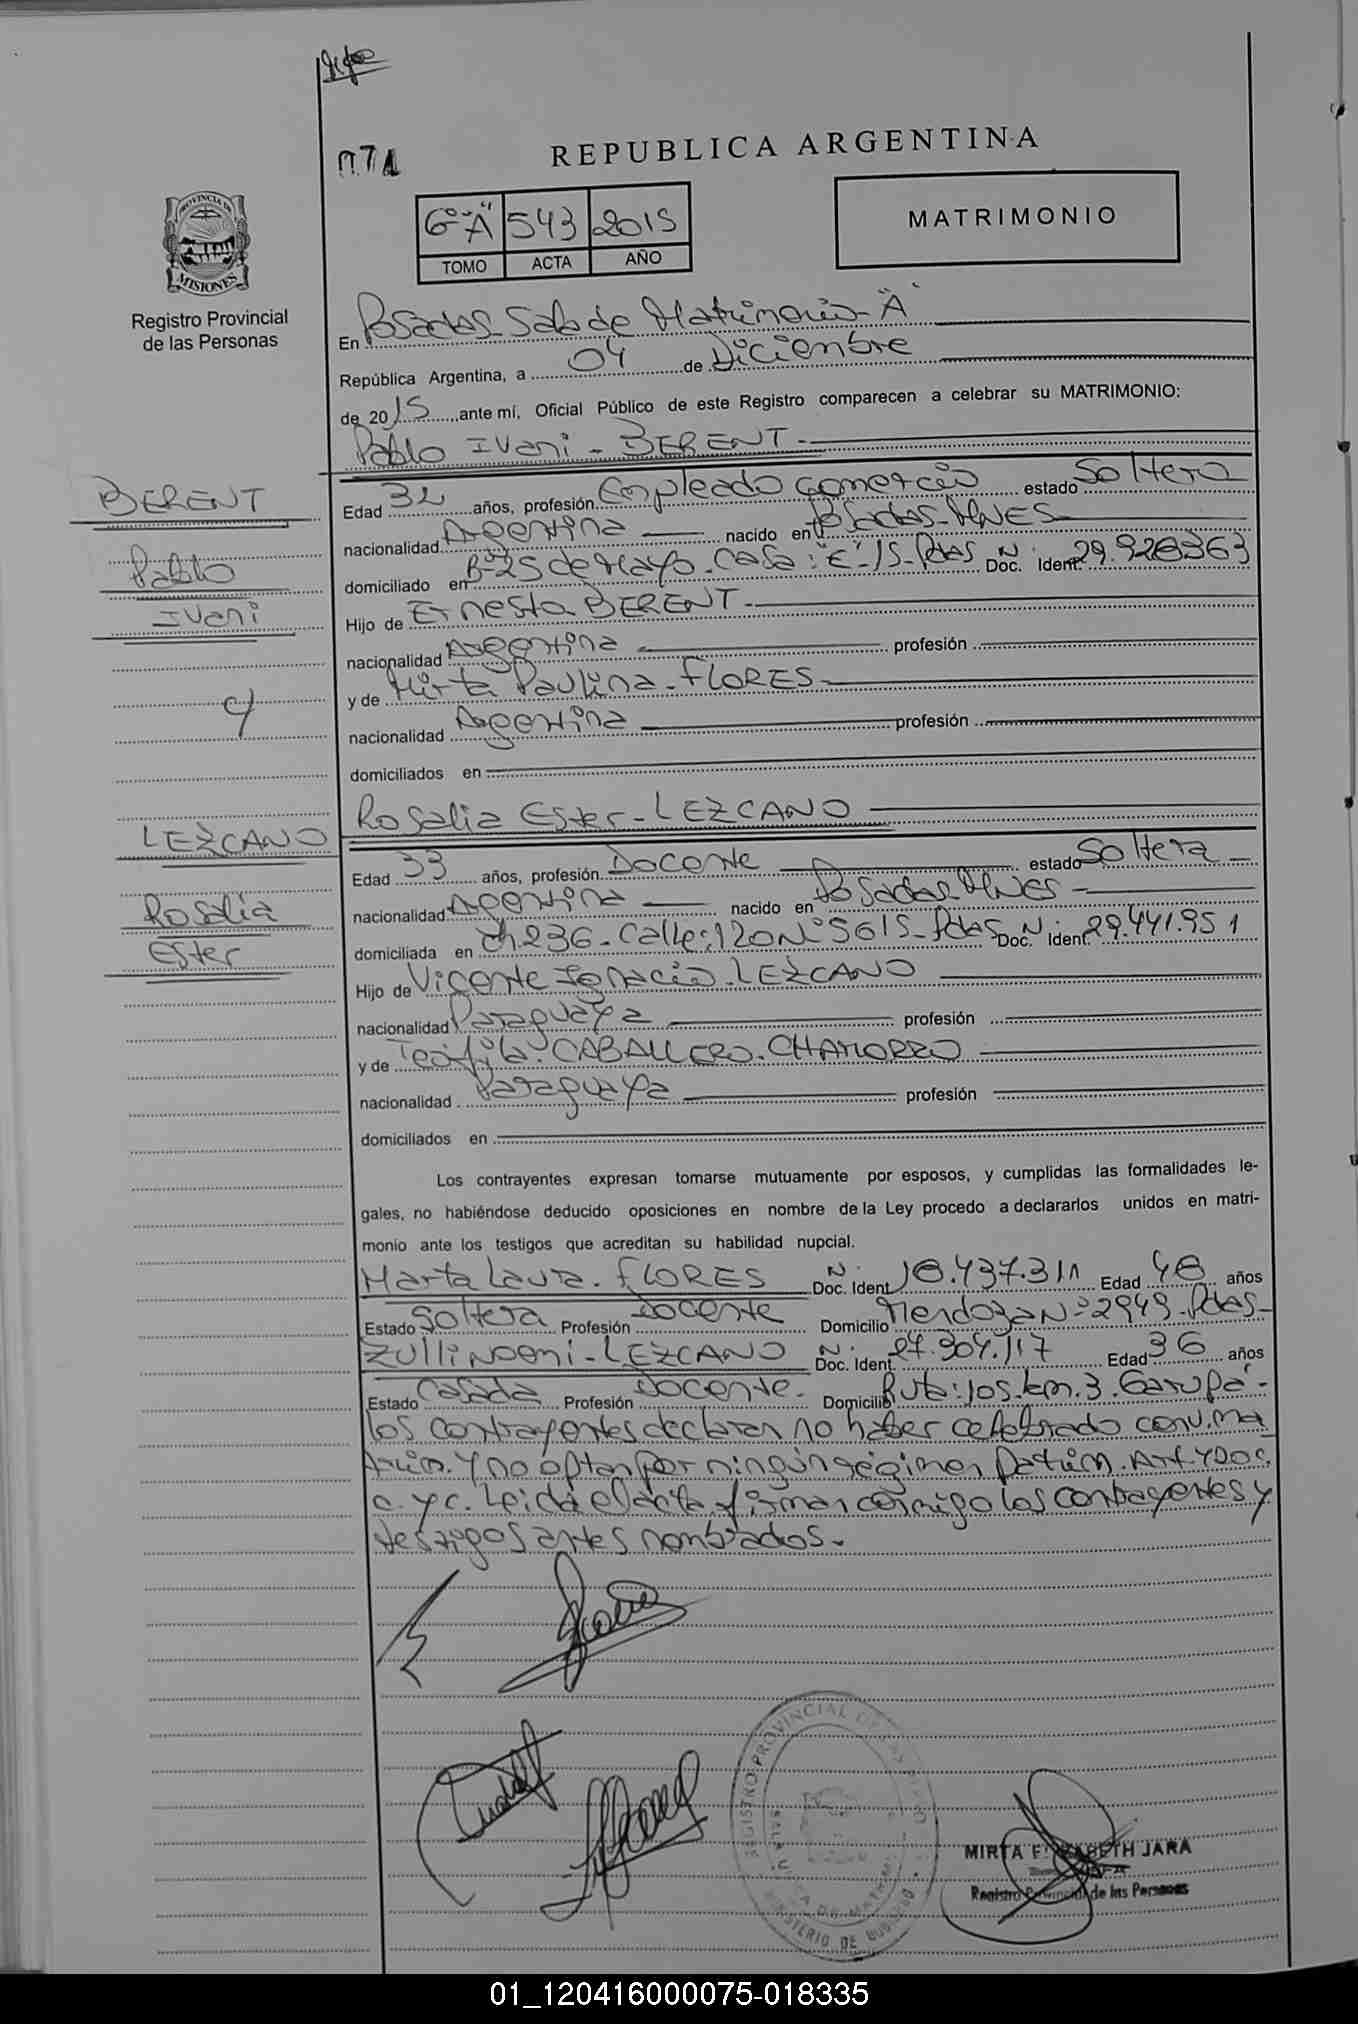 071
REPUBLICA ARGENTINA
6º "A" 543 2015
TOMO ACTA AÑO
MATRIMONIO
PROVINCIA DE
MISIONES
Registro Provincial
de las Personas
En Posadas Sala de Matrimonio "A"
República Argentina, a 04 de Diciembre
de 2015, ante mí, Oficial Público de este Registro comparecen a celebrar su MATRIMONIO:
Pablo Ivani - BERENT -
BERENT
Pablo
Ivani
c/
LEZCANO
Rosalia
Ester
Edad 32 años, profesión Empleado Comercio estado Soltero
nacionalidad Argentina nacido en Posadas - Mnes
domiciliado en Bº 25 de Mayo - Casa: "E" 15 - Pdas Doc. Ident. N 29.928363
Hijo de Ernesto BERENT -
nacionalidad Argentina profesión
y de Mirta Paulina - FLORES -
nacionalidad Argentina profesión
domiciliados en
Rosalia Ester - LEZCANO
Edad 33 años, profesión Docente estado Soltera -
nacionalidad Argentina nacido en Posadas Mnes -
domiciliada en Ch 236 - Calle: 120 Nº 5615 - Pdas Doc. Ident. N 29.441.951
Hijo de Vicente Ignacio - LEZCANO
nacionalidad Paraguaya profesión
y de Teófila: CABALLERO - CHAMORRO
nacionalidad Paraguaya profesión
domiciliados en
Los contrayentes expresan tomarse mutuamente por esposos, y cumplidas las formalidades le-
gales, no habiéndose deducido oposiciones en nombre de la Ley procedo a declararlos unidos en matri-
monio ante los testigos que acreditan su habilidad nupcial.
Marta Laura - FLORES Doc. Ident N 18.437.311 Edad 48 años
Estado Soltera Profesión Docente Domicilio Mendoza Nº 2949 - Pdas -
Zulli Noemi - LEZCANO Doc. Ident. N 27.304.117 Edad 36 años
Estado Casada Profesión Docente - Domicilio Ruta: 105. km. 3. Garupá -
los contrayentes declaran no haber celebrado conv. ma
trim. y no optan por ningún régimen Patrim. Art. 420 c.
c. y c. Leida el acta, firman conmigo los contrayentes y
testigos antes nombrados -
REGISTRO PROVINCIAL DE LAS PERSONAS
MINISTERIO DE GOBIERNO
MIRTA ELIZABETH JARA
JEFA
Registro Provincial de las Personas
01_120416000075-018335